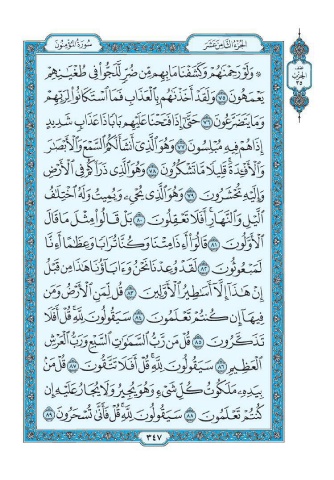 سُورَةُ المُؤْمِنُونَ
الجُزْءُ الثَّامِنَ عَشَرَ
۞ وَلَوْ رَحِمْنَٰهُمْ وَكَشَفْنَا مَا بِهِم مِّن ضُرٍّ لَّلَجُّوا۟ فِى طُغْيَٰنِهِمْ
يَعْمَهُونَ ٧٥ وَلَقَدْ أَخَذْنَٰهُم بِٱلْعَذَابِ فَمَا ٱسْتَكَانُوا۟ لِرَبِّهِمْ
وَمَا يَتَضَرَّعُونَ ٧٦ حَتَّىٰٓ إِذَا فَتَحْنَا عَلَيْهِم بَابًا ذَا عَذَابٍ شَدِيدٍ
إِذَا هُمْ فِيهِ مُبْلِسُونَ ٧٧ وَهُوَ ٱلَّذِىٓ أَنشَأَ لَكُمُ ٱلسَّمْعَ وَٱلْأَبْصَٰرَ
وَٱلْأَفْـِٔدَةَ قَلِيلًا مَّا تَشْكُرُونَ ٧٨ وَهُوَ ٱلَّذِى ذَرَأَكُمْ فِى ٱلْأَرْضِ
وَإِلَيْهِ تُحْشَرُونَ ٧٩ وَهُوَ ٱلَّذِى يُحْىِۦ وَيُمِيتُ وَلَهُ ٱخْتِلَٰفُ
ٱلَّيْلِ وَٱلنَّهَارِ أَفَلَا تَعْقِلُونَ ٨٠ بَلْ قَالُوا۟ مِثْلَ مَا قَالَ
ٱلْأَوَّلُونَ ٨١ قَالُوٓا۟ أَءِذَا مِتْنَا وَكُنَّا تُرَابًا وَعِظَٰمًا أَءِنَّا
لَمَبْعُوثُونَ ٨٢ لَقَدْ وُعِدْنَا نَحْنُ وَءَابَآؤُنَا هَٰذَا مِن قَبْلُ
إِنْ هَٰذَآ إِلَّآ أَسَٰطِيرُ ٱلْأَوَّلِينَ ٨٣ قُل لِّمَنِ ٱلْأَرْضُ وَمَن
فِيهَآ إِن كُنتُمْ تَعْلَمُونَ ٨٤ سَيَقُولُونَ لِلَّهِ قُلْ أَفَلَا
تَذَكَّرُونَ ٨٥ قُلْ مَن رَّبُّ ٱلسَّمَٰوَٰتِ ٱلسَّبْعِ وَرَبُّ ٱلْعَرْشِ
ٱلْعَظِيمِ ٨٦ سَيَقُولُونَ لِلَّهِ قُلْ أَفَلَا تَتَّقُونَ ٨٧ قُلْ مَنۢ
بِيَدِهِۦ مَلَكُوتُ كُلِّ شَىْءٍ وَهُوَ يُجِيرُ وَلَا يُجَارُ عَلَيْهِ إِن
كُنتُمْ تَعْلَمُونَ ٨٨ سَيَقُولُونَ لِلَّهِ قُلْ فَأَنَّىٰ تُسْحَرُونَ ٨٩
٣٤٧